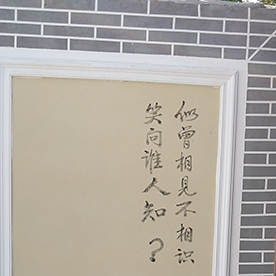 似曾相見不相识
笑向谁人知？